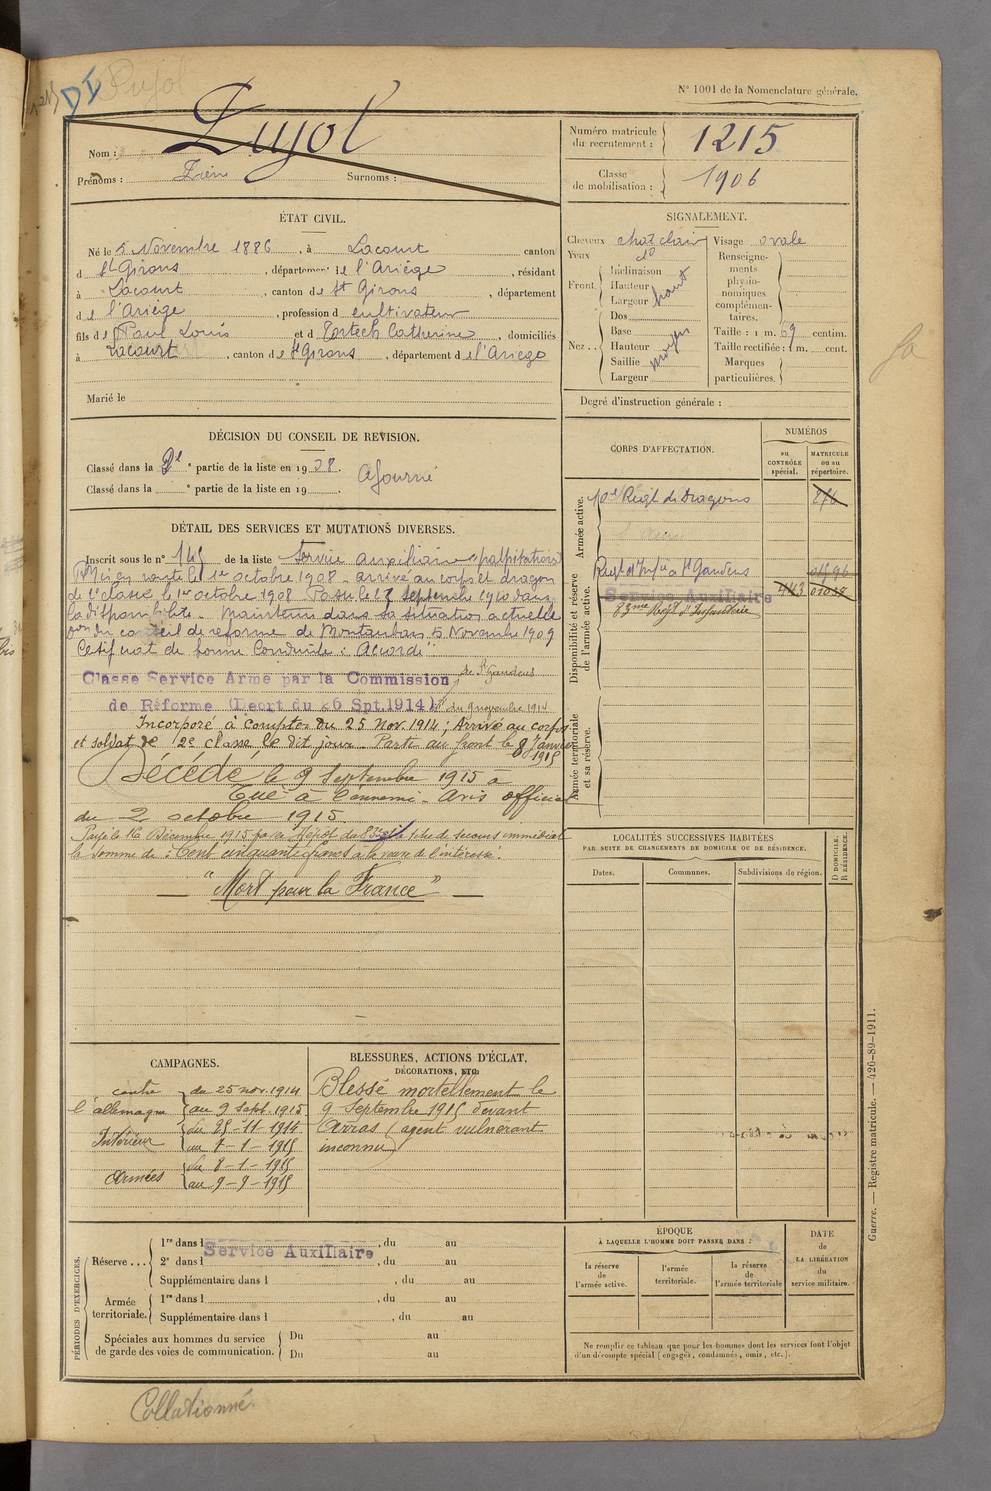 Pujol
N° 1001 de la Nomenclature générale.
Nom : Pujol
Prénoms :
Surnoms :
Numéro matricule du recrutement : 1215
Classe de mobilisation : 1906
ÉTAT CIVIL.
Né le 5 Novembre 1886, à Lacourt canton
d St Girons, département de l'Ariège, résidant
à Lacourt, canton de St Girons, département
de l'Ariège, profession d cultivateur
fils de Paul Louis et d Portech Catherine, domiciliés
à Lacourt, canton de St Girons, département de l'Ariège
Marié le
SIGNALEMENT.
Cheveux chat clair
Yeux do
Front. Inclinaison
Hauteur
Largeur haut
Nez.. Dos
Base
Hauteur moyen
Saillie
Largeur
Visage ovale
Renseignements physionomiques complémentaires.
Taille : 1 m. 69 centim.
Taille rectifiée : 1 m. cent.
Marques particulières.
Degré d'instruction générale :
DÉCISION DU CONSEIL DE REVISION.
Classé dans la partie de la liste en 1908. Ajourné
Classé dans la ° partie de la liste en 19
CORPS D'AFFECTATION.
NUMÉROS
au CONTRÔLE spécial.
MATRICULE ou au répertoire.
Armée active.
10e Régt de Dragons
Disponibilité et réserve de l'armée active.
Régt d'Infie à St Gaudens
Service Auxiliaire 443
83me Regt d'Infanterie
Armée territoriale et sa réserve.
DÉTAIL DES SERVICES ET MUTATIONS DIVERSES.
Inscrit sous le n° 145 de la liste Service auxiliaire (palpitations)
Mis en route le 1er octobre 1908 - arrivé au corps et dragon
de 2e classe le 1er octobre 1908. Passé le septembre 1910 dans
la disponibilité. Maintenu dans sa situation actuelle
par du conseil de reforme de Montauban 5 Novembre 1909
Certificat de bonne Conduite : Accordé
Classé Service Armé par la Commission de St Gaudens
de Réforme (Décrt du 26 Spt.1914) du 9 novembre 1914
Incorporé à compter du 25 Nov. 1914 ; Arrivé au corps
et soldat de 2e classe le dit jour. Parti au front le 8 Janvier 1915
Décédé le 9 Septembre 1915 à
Tué à l'ennemi - Avis officiel
du 2 octobre 1915.
Payé le 16 Décembre 1915 par le Dépôt du 83me de secours immédiat
la somme de : Cent cinquante francs à la mère de l'intéressé.
"Mort pour la France"
LOCALITÉS SUCCESSIVES HABITÉES
PAR SUITE DE CHANGEMENTS DE DOMICILE OU DE RÉSIDENCE.
Dates.
Communes.
Subdivisions de région.
D DOMICILE.
R RÉSIDENCE.
CAMPAGNES.
contre l'allemagne du 25 nov. 1914
au 9 Sept. 1915
Intérieur du 25-11-1914
au 7-1-1915
Armées du 8-1-1915
au 9-9-1915
BLESSURES, ACTIONS D'ÉCLAT,
DÉCORATIONS, ETC.
Blessé mortellement le
9 Septembre 1915 devant
Arras (agent vulnérant
inconnu)
Guerre. — Registre matricule. — 426-89-1911.
PÉRIODES D'EXERCICES.
Réserve ...
1re dans l , du au
2e dans l Service Auxiliaire , du au
Supplémentaire dans l , du au
Armée territoriale.
1re dans l , du au
Supplémentaire dans l , du au
Spéciales aux hommes du service de garde des voies de communication.
Du au
Du au
ÉPOQUE
À LAQUELLE L'HOMME DOIT PASSER DANS :
la réserve de l'armée active.
l'armée territoriale.
la réserve de l'armée territoriale
DATE de LA LIBÉRATION du service militaire.
Ne remplir ce tableau que pour les hommes dont les services font l'objet
d'un décompte spécial (engagés, condamnés, omis, etc.).
Collationné